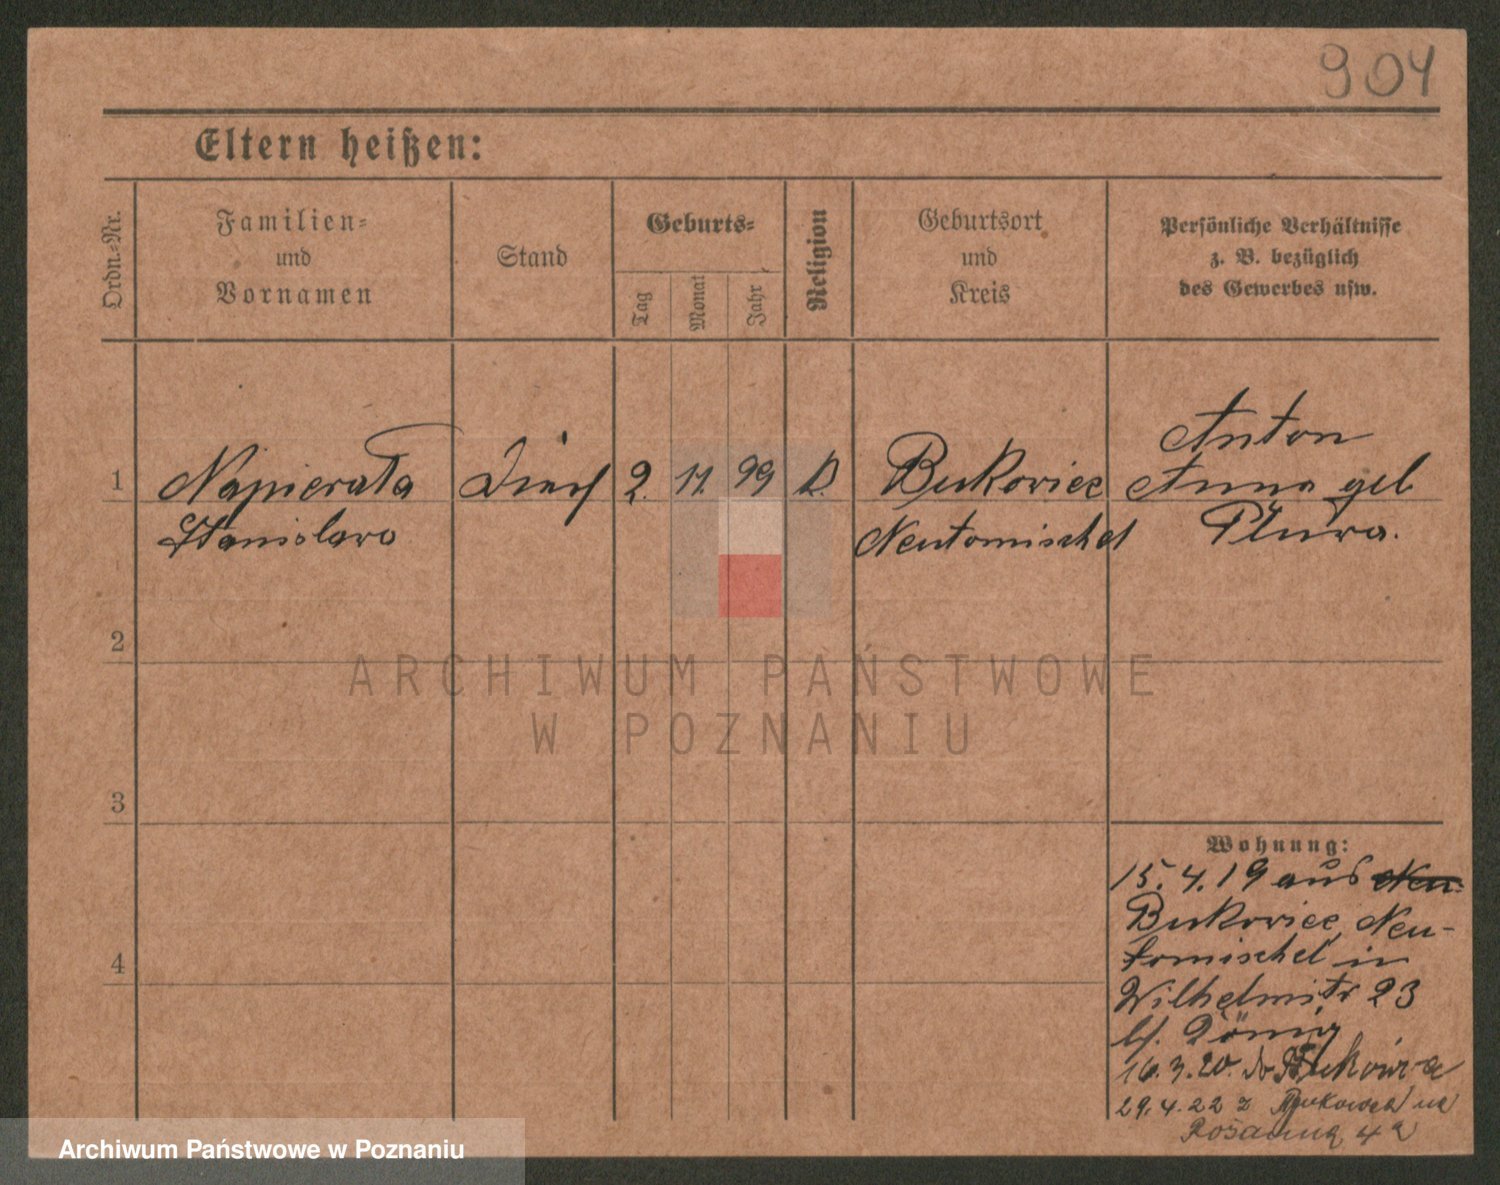 904
Eltern heißen:
Ordn.-Nr.
Familien-
und
Vornamen
Stand
Geburts-
Tag
Monat
Jahr
Religion
Geburtsort
und
Kreis
Persönliche Verhältnisse
z. B. bezüglich
des Gewerbes usw.
1
Napierała
Stanislawa
2. 11. 99
K.
Bukowiec
Neutomischel
Anton
Anna geb
Pluwa.
2
3
4
ARCHIWUM PAŃSTWOWE
W POZNANIU
Wohnung:
15.4.19 aus Neu
Bukowiec, Neu-
tomischel in
Wilhelmstr 23
b/.
16.3.20. do Bukowca
29.4.22 z Bukowca na
4a
Archiwum Państwowe w Poznaniu